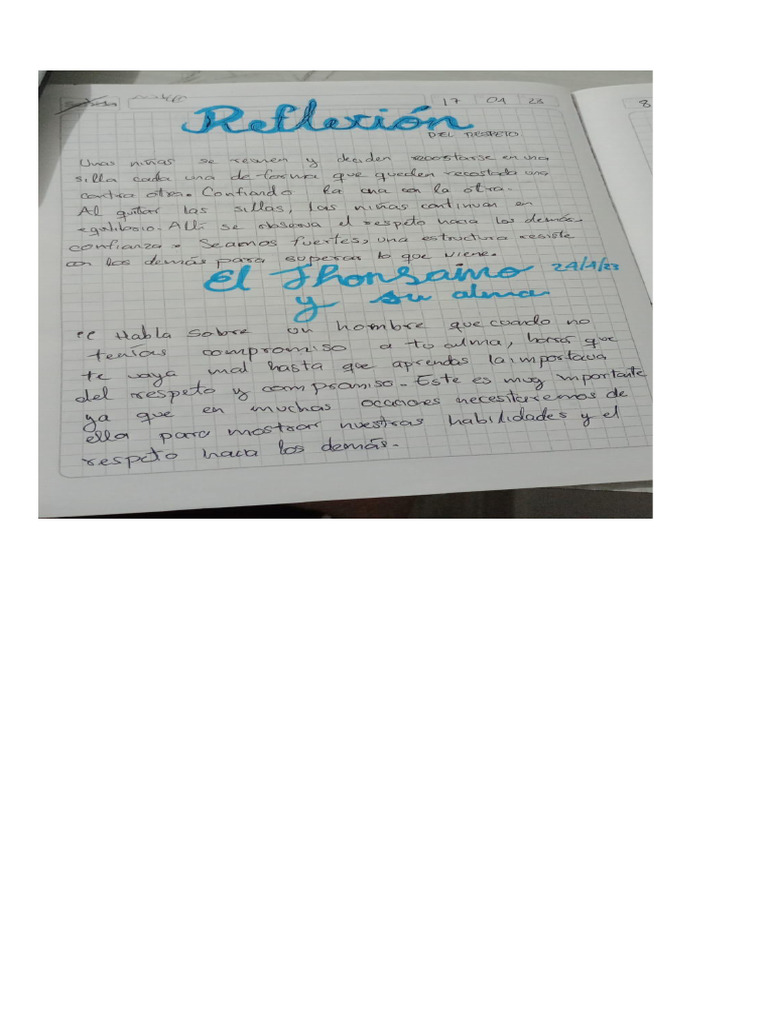 17 01 23 8
Reflexión
DEL RESPETO
Unas niñas se reunen y deciden recostarse en una
silla cada una de forma que queden recostada una
contra otra. Confiando la una con la otra.
Al quitar las sillas, las niñas continuan en
egolibrio. Allí se observa el respeto hacia los demás,
confianza. Seamos fuertes, una estructura resiste
con los demás para superar lo que viene.
El Jhonsaino 24/1/23
y su alma
Habla sobre un hombre que cuando no
tenías compromiso a tu alma, hará que
te vaya mal hasta que aprendas la importacia
del respeto y compromiso. Este es muy importante
ya que en muchas ocaciones necesitaremos de
ella para mostrar nuestras habilidades y el
respeto hacia los demás.